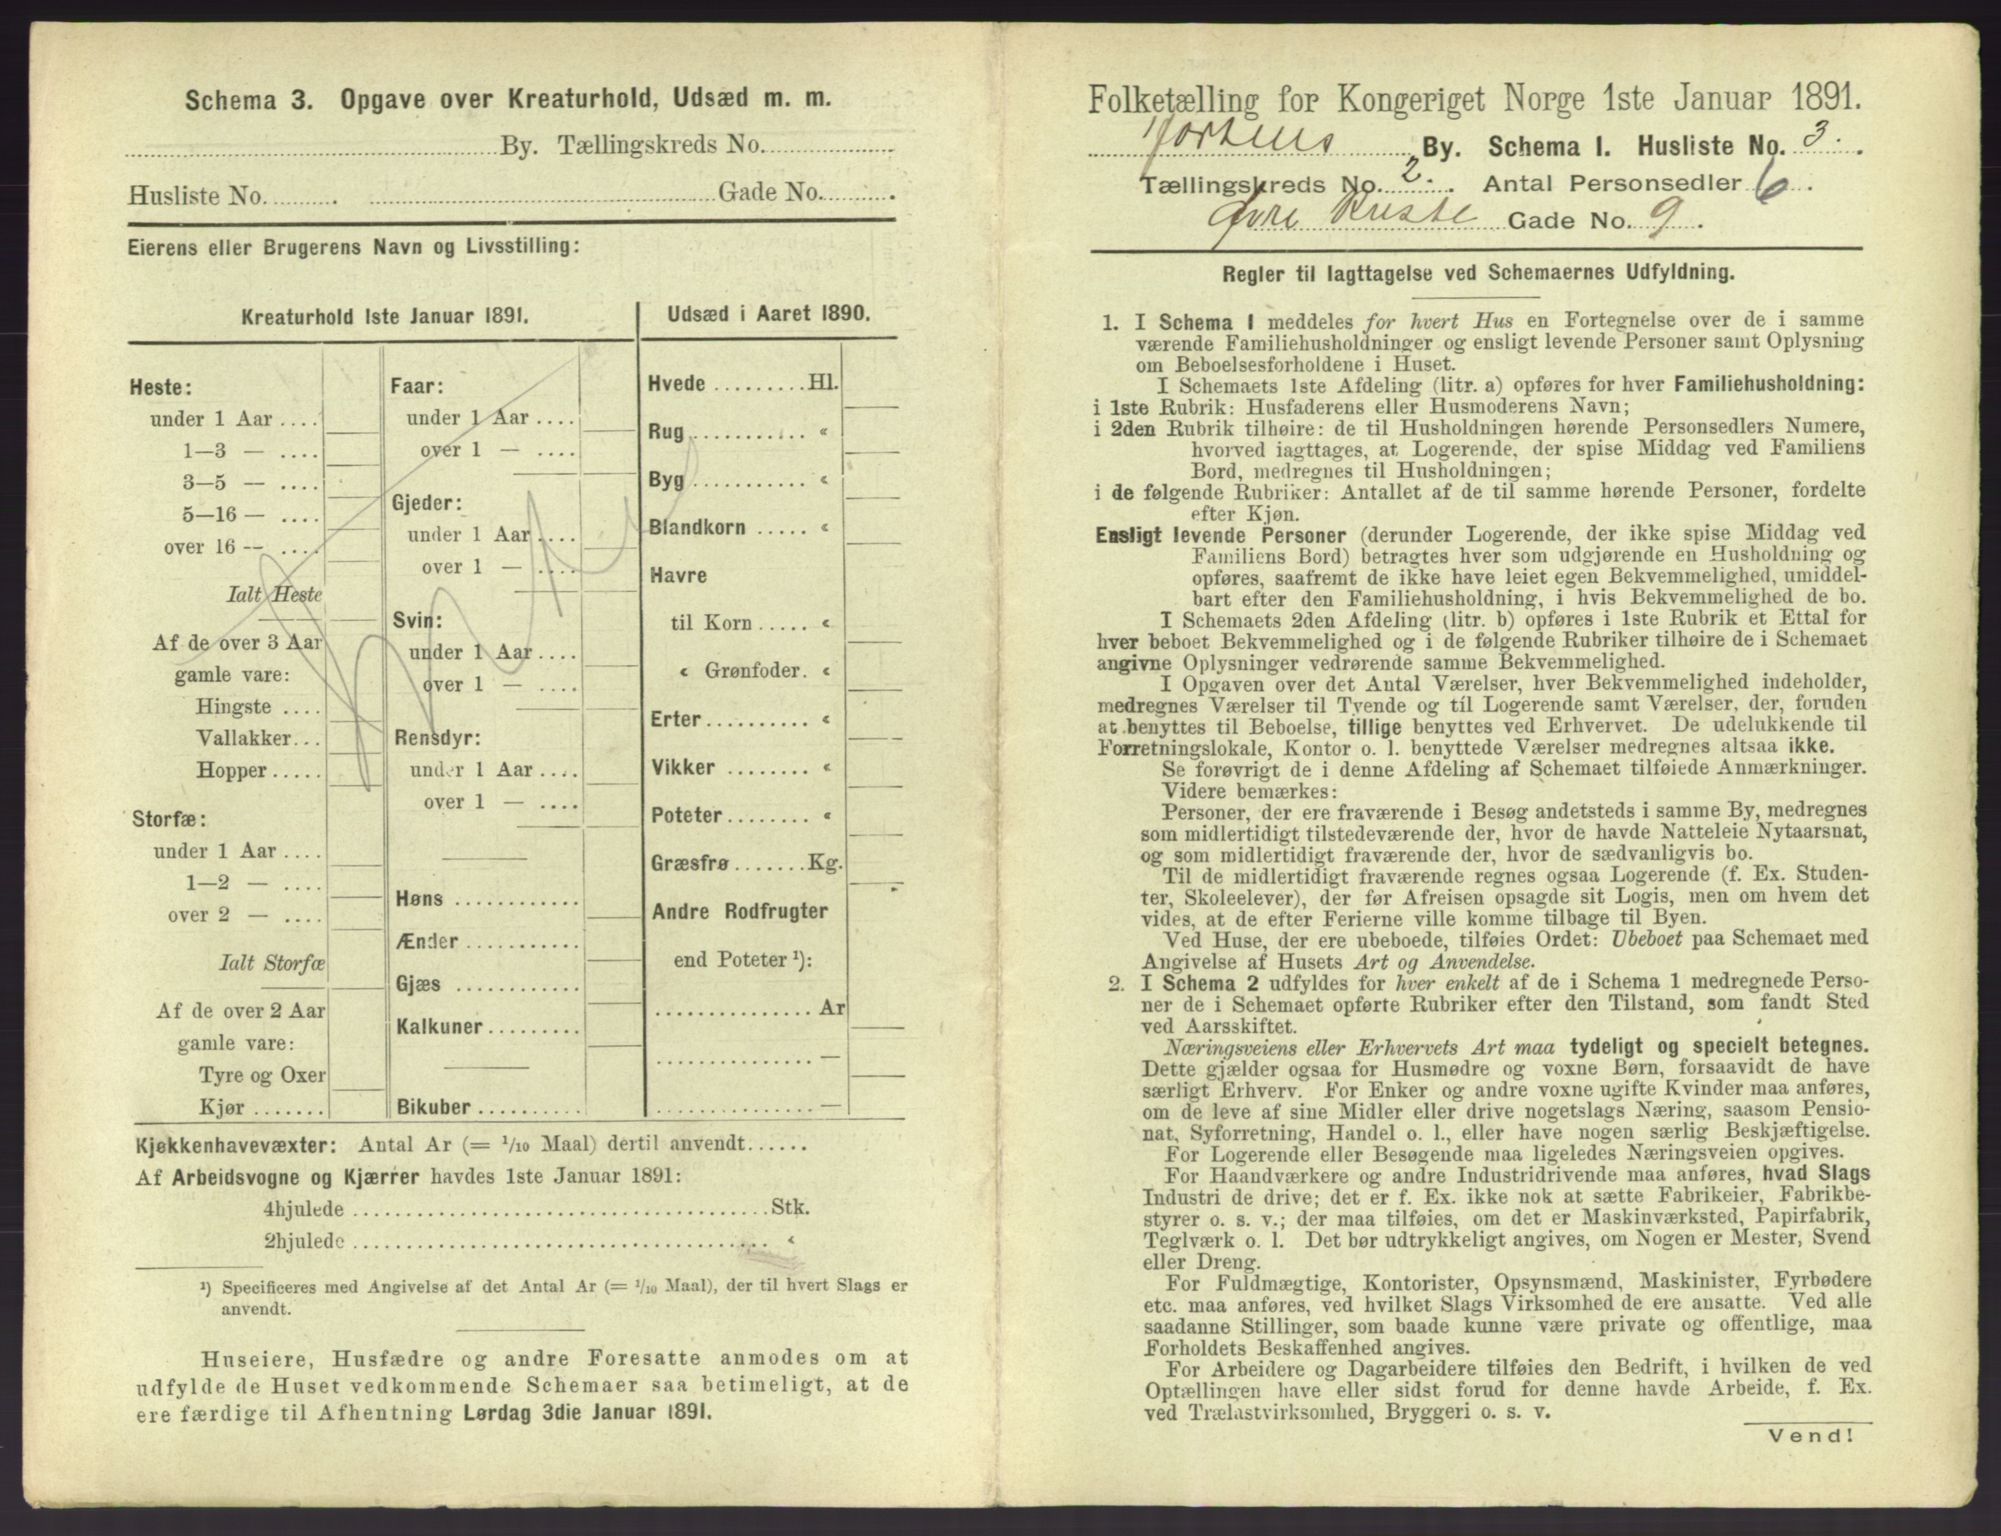 Schema 3. Opgave over Kreaturhold, Udsæd m. m.
By. Tællingskreds No.
Husliste No. Gade No.
Eierens eller Brugerens Navn og Livsstilling:
Kreaturhold 1ste Januar 1891.
Heste:
under 1 Aar
1—3 —
3—5 —
5—16 —
over 16 —
Ialt Heste
Af de over 3 Aar
gamle vare:
Hingste
Vallakker
Hopper
Storfæ:
under 1 Aar
1—2 —
over 2 —
Ialt Storfæ
Af de over 2 Aar
gamle vare:
Tyre og Oxer
Kjør
Faar:
under 1 Aar
over 1 —
Gjeder:
under 1 Aar
over 1 —
Svin:
under 1 Aar
over 1 —
Rensdyr:
under 1 Aar
over 1 —
Høns
Ænder
Gjæs
Kalkuner
Bikuber
Udsæd i Aaret 1890.
Hvede Hl.
Rug «
Byg «
Blandkorn «
Havre
til Korn «
« Grønfoder «
Erter «
Vikker «
Poteter «
Græsfrø Kg.
Andre Rodfrugter
end Poteter ¹):
Ar
—
—
Kjøkkenhavevæxter: Antal Ar (= 1/10 Maal) dertil anvendt
Af Arbeidsvogne og Kjærrer havdes 1ste Januar 1891:
4hjulede Stk.
2hjulede «
¹) Specificeres med Angivelse af det Antal Ar (= 1/10 Maal), der til hvert Slags er
anvendt.
Huseiere, Husfædre og andre Foresatte anmodes om at
udfylde de Huset vedkommende Schemaer saa betimeligt, at de
ere færdige til Afhentning Lørdag 3die Januar 1891.
Folketælling for Kongeriget Norge 1ste Januar 1891.
Hortens By. Schema I. Husliste No. 3.
Tællingskreds No. 2. Antal Personsedler 6.
Øvre Gade No. 9.
Regler til Iagttagelse ved Schemaernes Udfyldning.
1. I Schema 1 meddeles for hvert Hus en Fortegnelse over de i samme
værende Familiehusholdninger og ensligt levende Personer samt Oplysning
om Beboelsesforholdene i Huset.
I Schemaets 1ste Afdeling (litr. a) opføres for hver Familiehusholdning:
i 1ste Rubrik: Husfaderens eller Husmoderens Navn;
i 2den Rubrik tilhøire: de til Husholdningen hørende Personsedlers Numere,
hvorved iagttages, at Logerende, der spise Middag ved Familiens
Bord, medregnes til Husholdningen;
i de følgende Rubriker: Antallet af de til samme hørende Personer, fordelte
efter Kjøn.
Ensligt levende Personer (derunder Logerende, der ikke spise Middag ved
Familiens Bord) betragtes hver som udgjørende en Husholdning og
opføres, saafremt de ikke have leiet egen Bekvemmelighed, umiddel-
bart efter den Familiehusholdning, i hvis Bekvemmelighed de bo.
I Schemaets 2den Afdeling (litr. b) opføres i 1ste Rubrik et Ettal for
hver beboet Bekvemmelighed og i de følgende Rubriker tilhøire de i Schemaet
angivne Oplysninger vedrørende samme Bekvemmelighed.
I Opgaven over det Antal Værelser, hver Bekvemmelighed indeholder,
medregnes Værelser til Tyende og til Logerende samt Værelser, der, foruden
at benyttes til Beboelse, tillige benyttes ved Erhvervet. De udelukkende til
Forretningslokale, Kontor o. l. benyttede Værelser medregnes altsaa ikke.
Se forøvrigt de i denne Afdeling af Schemaet tilføiede Anmærkninger.
Videre bemærkes:
Personer, der ere fraværende i Besøg andetsteds i samme By, medregnes
som midlertidigt tilstedeværende der, hvor de havde Natteleie Nytaarsnat,
og som midlertidigt fraværende der, hvor de sædvanligvis bo.
Til de midlertidigt fraværende regnes ogsaa Logerende (f. Ex. Studen-
ter, Skoleelever), der før Afreisen opsagde sit Logis, men om hvem det
vides, at de efter Ferierne ville komme tilbage til Byen.
Ved Huse, der ere ubeboede, tilføies Ordet: Ubeboet paa Schemaet med
Angivelse af Husets Art og Anvendelse.
2. I Schema 2 udfyldes for hver enkelt af de i Schema 1 medregnede Perso-
ner de i Schemaet opførte Rubriker efter den Tilstand, som fandt Sted
ved Aarsskiftet.
Næringsveiens eller Erhvervets Art maa tydeligt og specielt betegnes.
Dette gjælder ogsaa for Husmødre og voxne Børn, forsaavidt de have
særligt Erhverv. For Enker og andre voxne ugifte Kvinder maa anføres,
om de leve af sine Midler eller drive nogetslags Næring, saasom Pensio-
nat, Syforretning, Handel o. l., eller have nogen særlig Beskjæftigelse.
For Logerende eller Besøgende maa ligeledes Næringsveien opgives.
For Haandværkere og andre Industridrivende maa anføres, hvad Slags
Industri de drive; det er f. Ex. ikke nok at sætte Fabrikeier, Fabrikbe-
styrer o. s. v.; der maa tilføies, om det er Maskinværksted, Papirfabrik,
Teglværk o. l. Det bør udtrykkeligt angives, om Nogen er Mester, Svend
eller Dreng.
For Fuldmægtige, Kontorister, Opsynsmænd, Maskinister, Fyrbødere
etc. maa anføres, ved hvilket Slags Virksomhed de ere ansatte. Ved alle
saadanne Stillinger, som baade kunne være private og offentlige, maa
Forholdets Beskaffenhed angives.
For Arbeidere og Dagarbeidere tilføies den Bedrift, i hvilken de ved
Optællingen have eller sidst forud for denne havde Arbeide, f. Ex.
ved Trælastvirksomhed, Bryggeri o. s. v.
Vend!